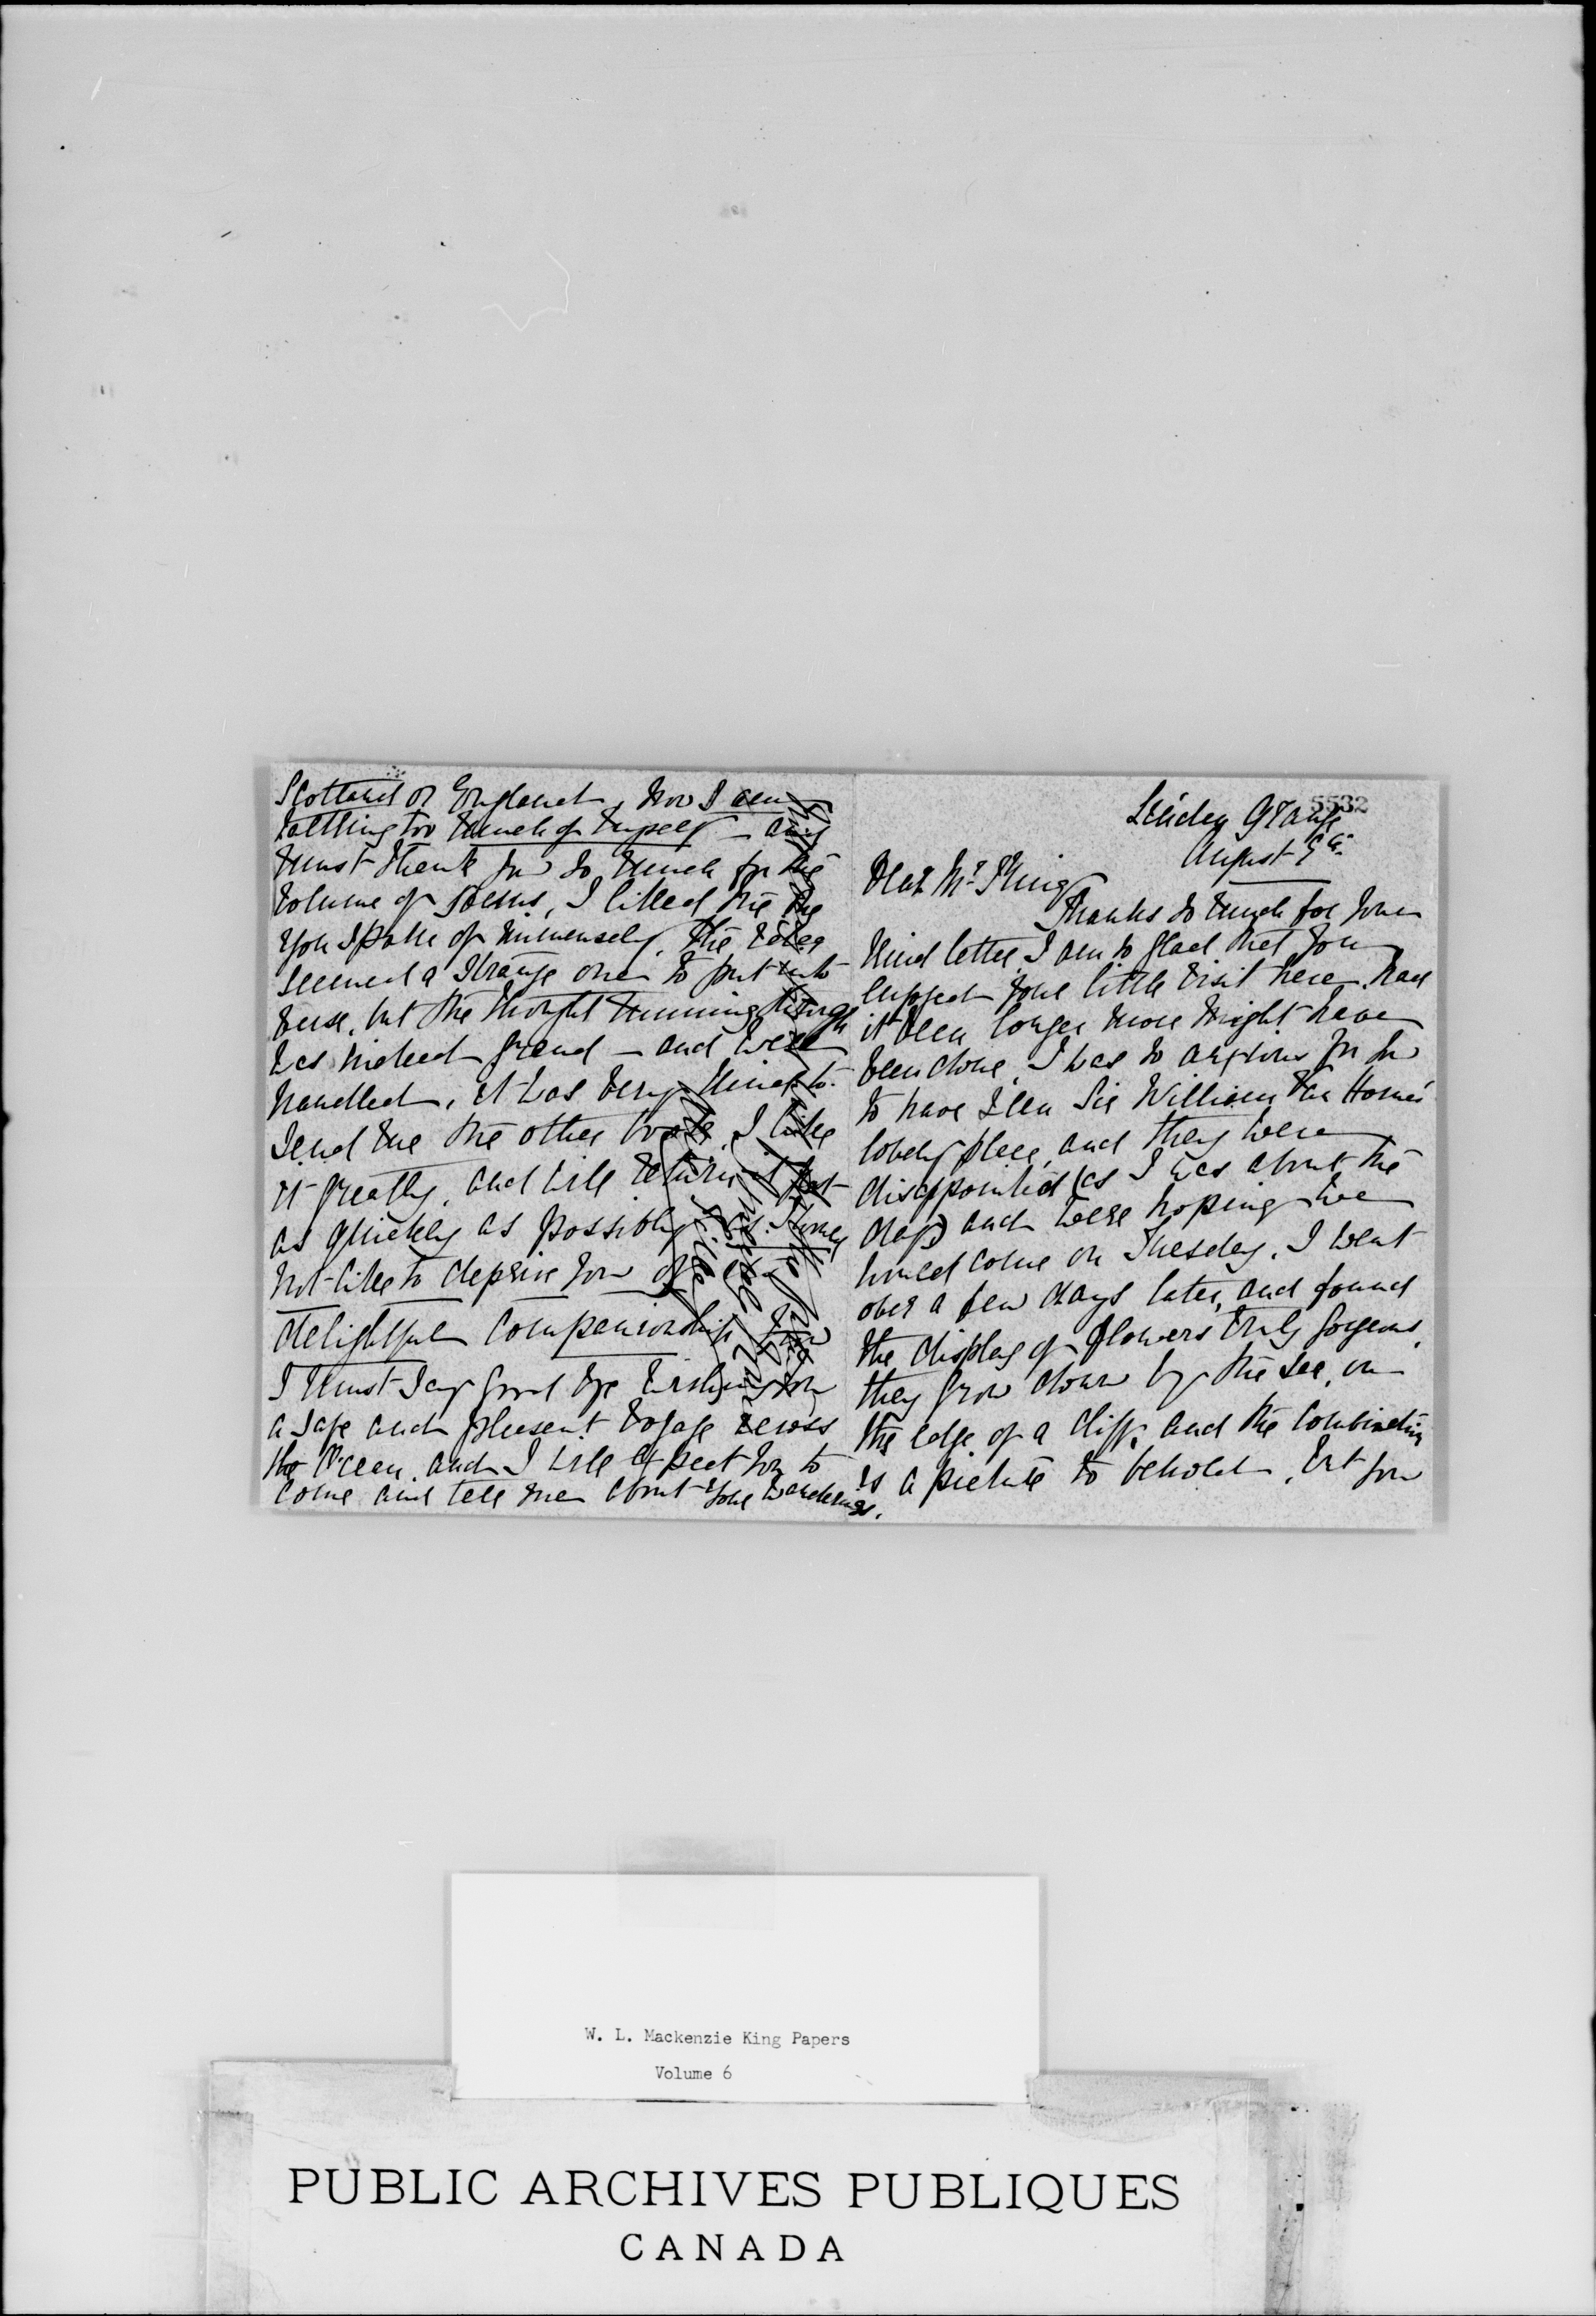 5532
Linden Grange
August 9th
Dear Mr King
Thanks so much for your
kind letter, I am so glad that you
enjoyed your little visit here. had
it been longer more might have
been done, I was so anxious for you
to have seen Sir William Van Horne's
lovely place, and they were
disappointed (as I was about the
day) and were hoping we
would come on Tuesday. I went
over a few days later, and found
the display of flowers truly gorgeous,
they grow down by the sea, on
the edge of a cliff, and the combination
is a picture to behold. But you
Scotland or England, now I am
talking too much of myself — and
must thank you so much for the
volume of poems, I liked the one
you spoke of immensely, the idea
seemed a strange one to put into
verse, but the thought running through
was indeed grand — and well
handled. it was very kind to
send me the other book, I like
it greatly, and will return it
as quickly as possible, as I would
not like to deprive you of
delightful companionship. Now
I must say good bye wishing you
a safe and pleasant voyage across
the Ocean, and I will expect you to
come and tell me about your wanderings.
W. L. Mackenzie King Papers
Volume 6
PUBLIC ARCHIVES PUBLIQUES
CANADA